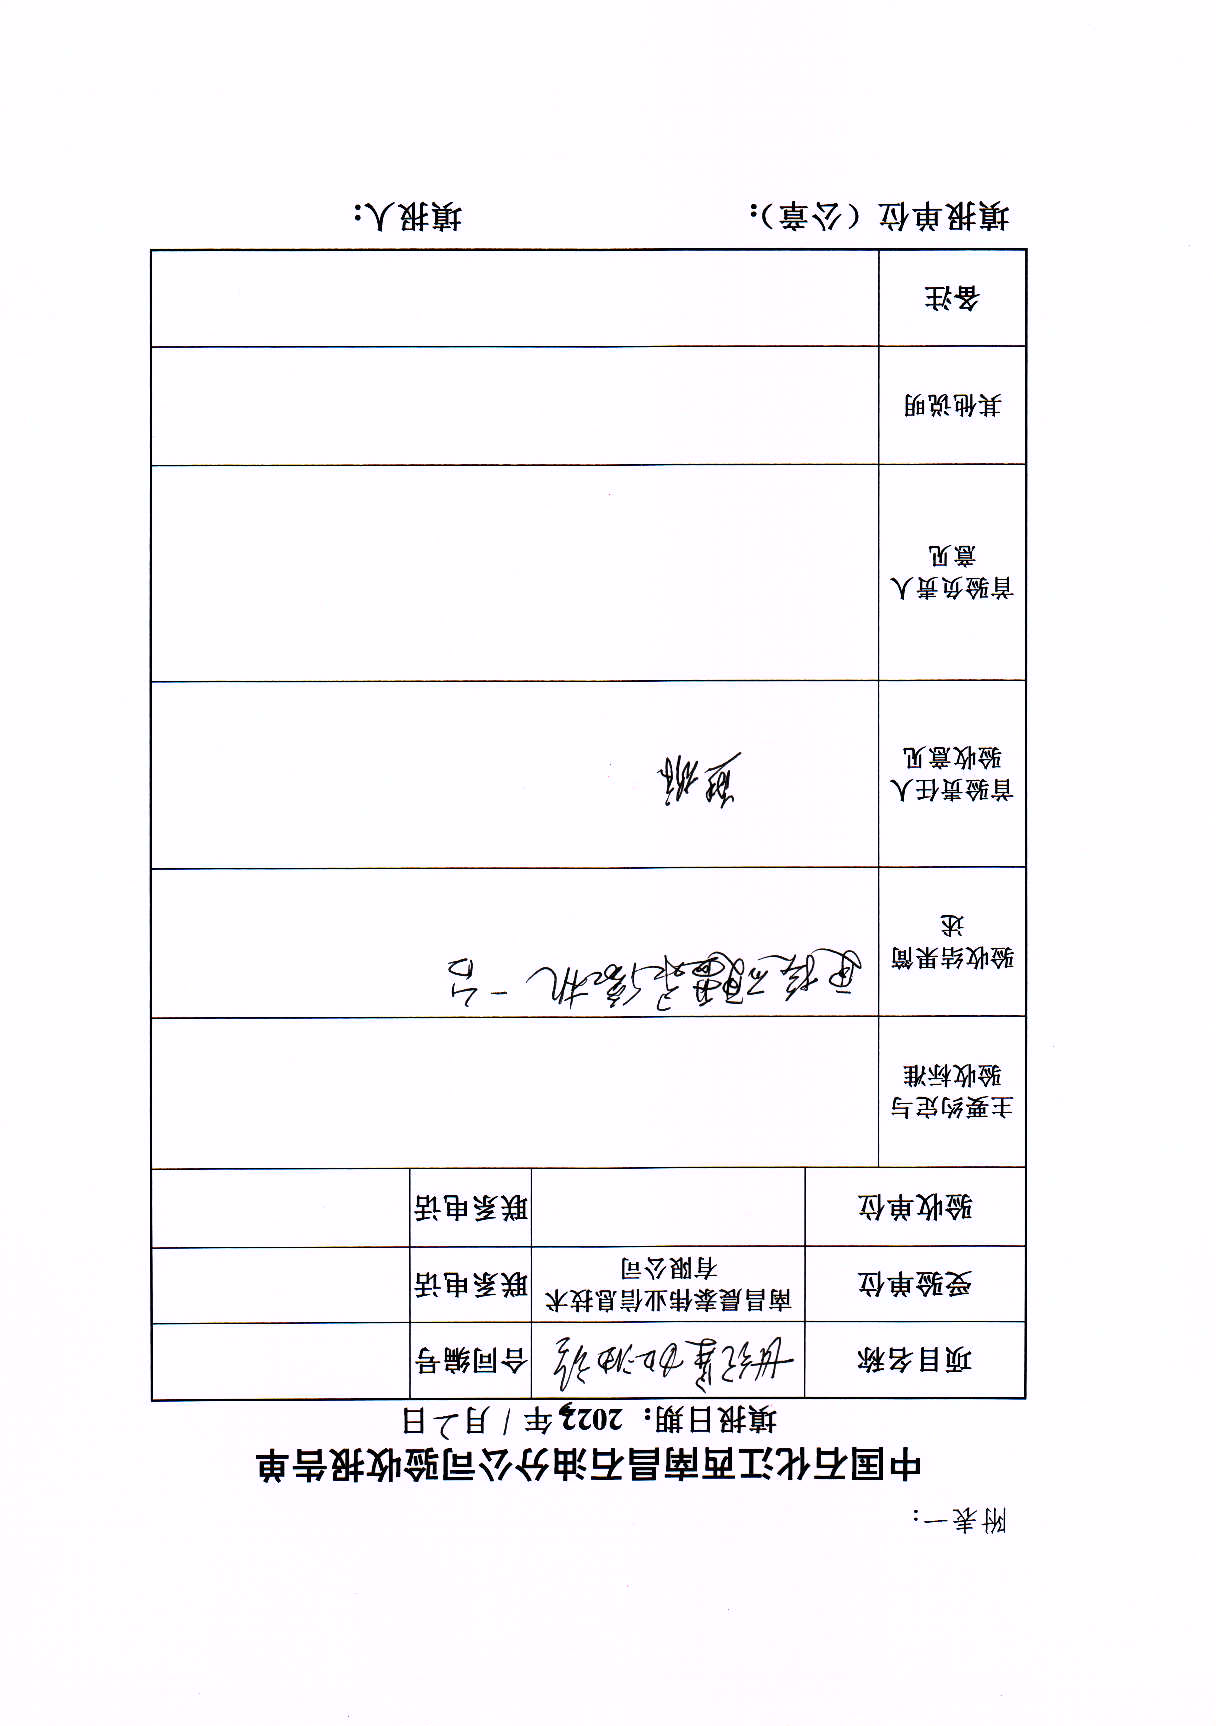 附表一：
中国石化江西南昌石油分公司验收报告单
填报日期：2022年1月7日
项目名称 世纪星加油站 合同编号
受验单位 南昌晨泰伟业信息技术
有限公司 联系电话
验收单位 联系电话
主要约定与
验收标准
验收结果简
述
更换 录像机一台
首验责任人
验收意见
首验负责人
意见
其他说明
备注
填报单位（公章）： 填报人：